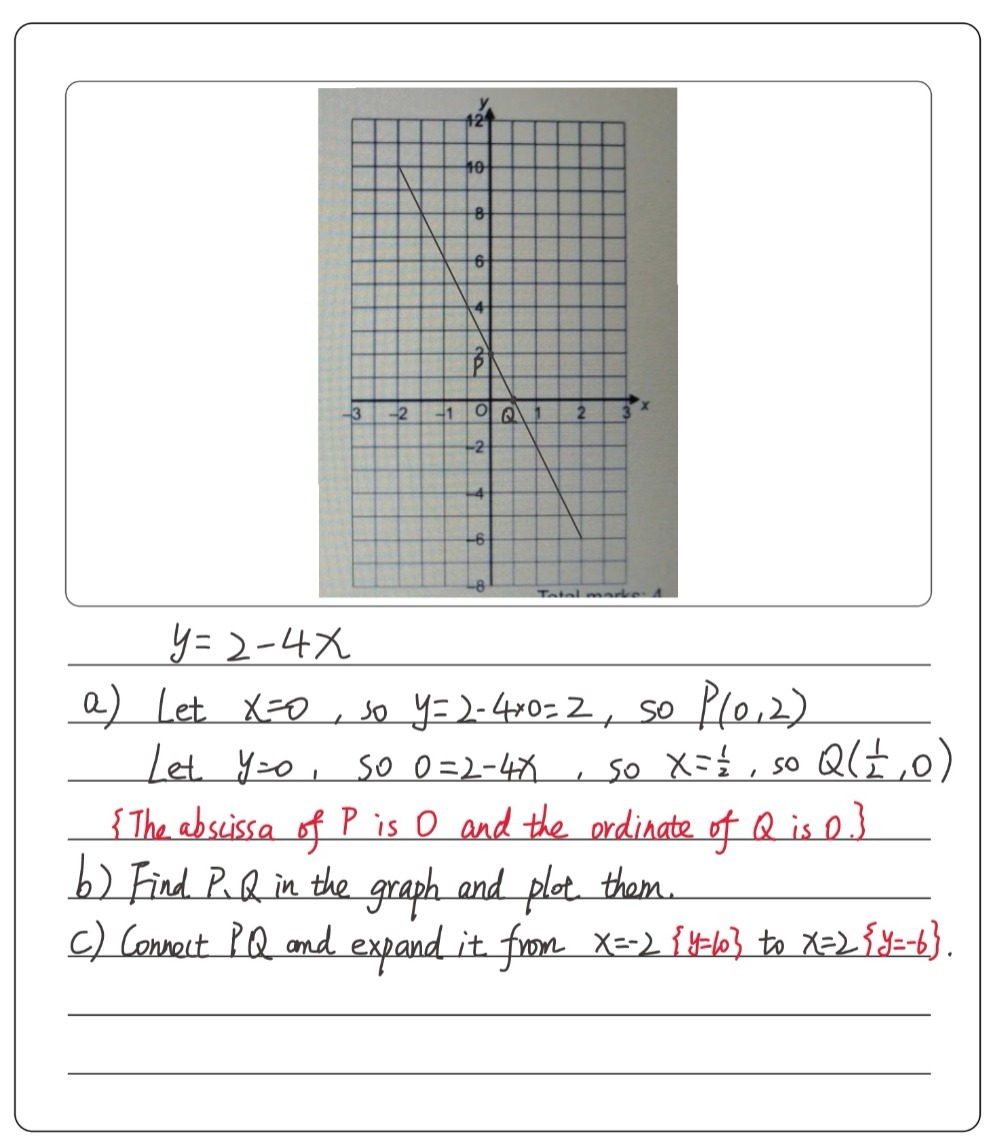 y
12
10
8
6
4
2
P
-3 -2 -1 O Q 1 2 3 x
-2
-4
-6
-8
Total marks: 4
y = 2 - 4x
a) Let x=0 , so y=2-4*0=2, so P(0,2)
Let y=0, so 0=2-4x , so x=1/2, so Q(1/2,0)
{The abscissa of P is 0 and the ordinate of Q is 0.}
b) Find P、Q in the graph and plot them.
c) Connect PQ and expand it from x=-2 {y=10} to x=2 {y=-6}.